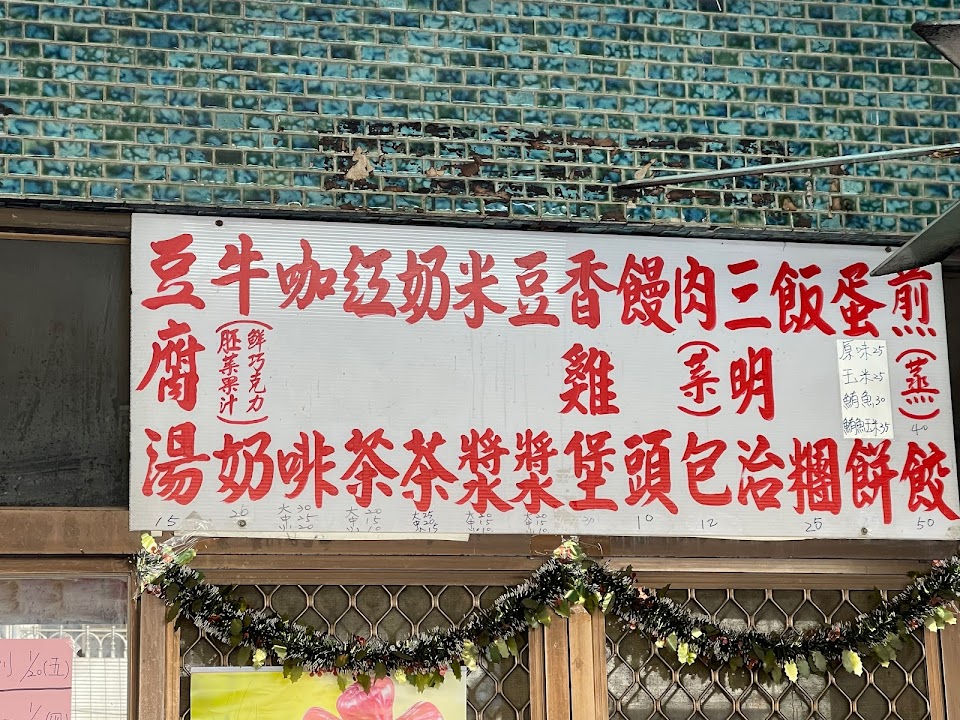 煎(蒸)餃 40 50
蛋餅
原味25
玉米25
鮪魚30
鮪魚玉米35
飯糰 25
三明治
肉(菜)包 12
饅頭 10
香雞堡
豆漿 大20 中15 小10
米漿 大20 中15 小10
奶茶 大25 中20 小15
紅茶 大20 中15 小10
咖啡 大30 中25 小20
牛(鮮巧克力
胚芽果汁)奶 20
豆腐湯 15
1/20(五)